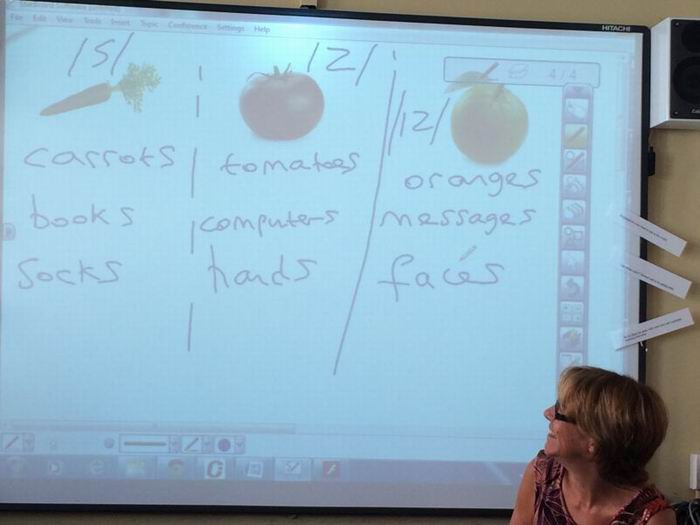 HITACHI
File Edit View Tools Insert Topic Conference Settings Help
4/4
/s/ /z/ /ız/
carrots tomatoes oranges
books computers messages
socks hands faces